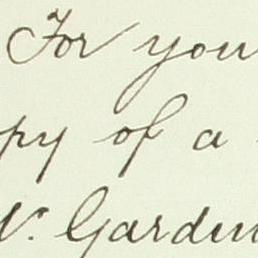 For you
py of a
r. Garden